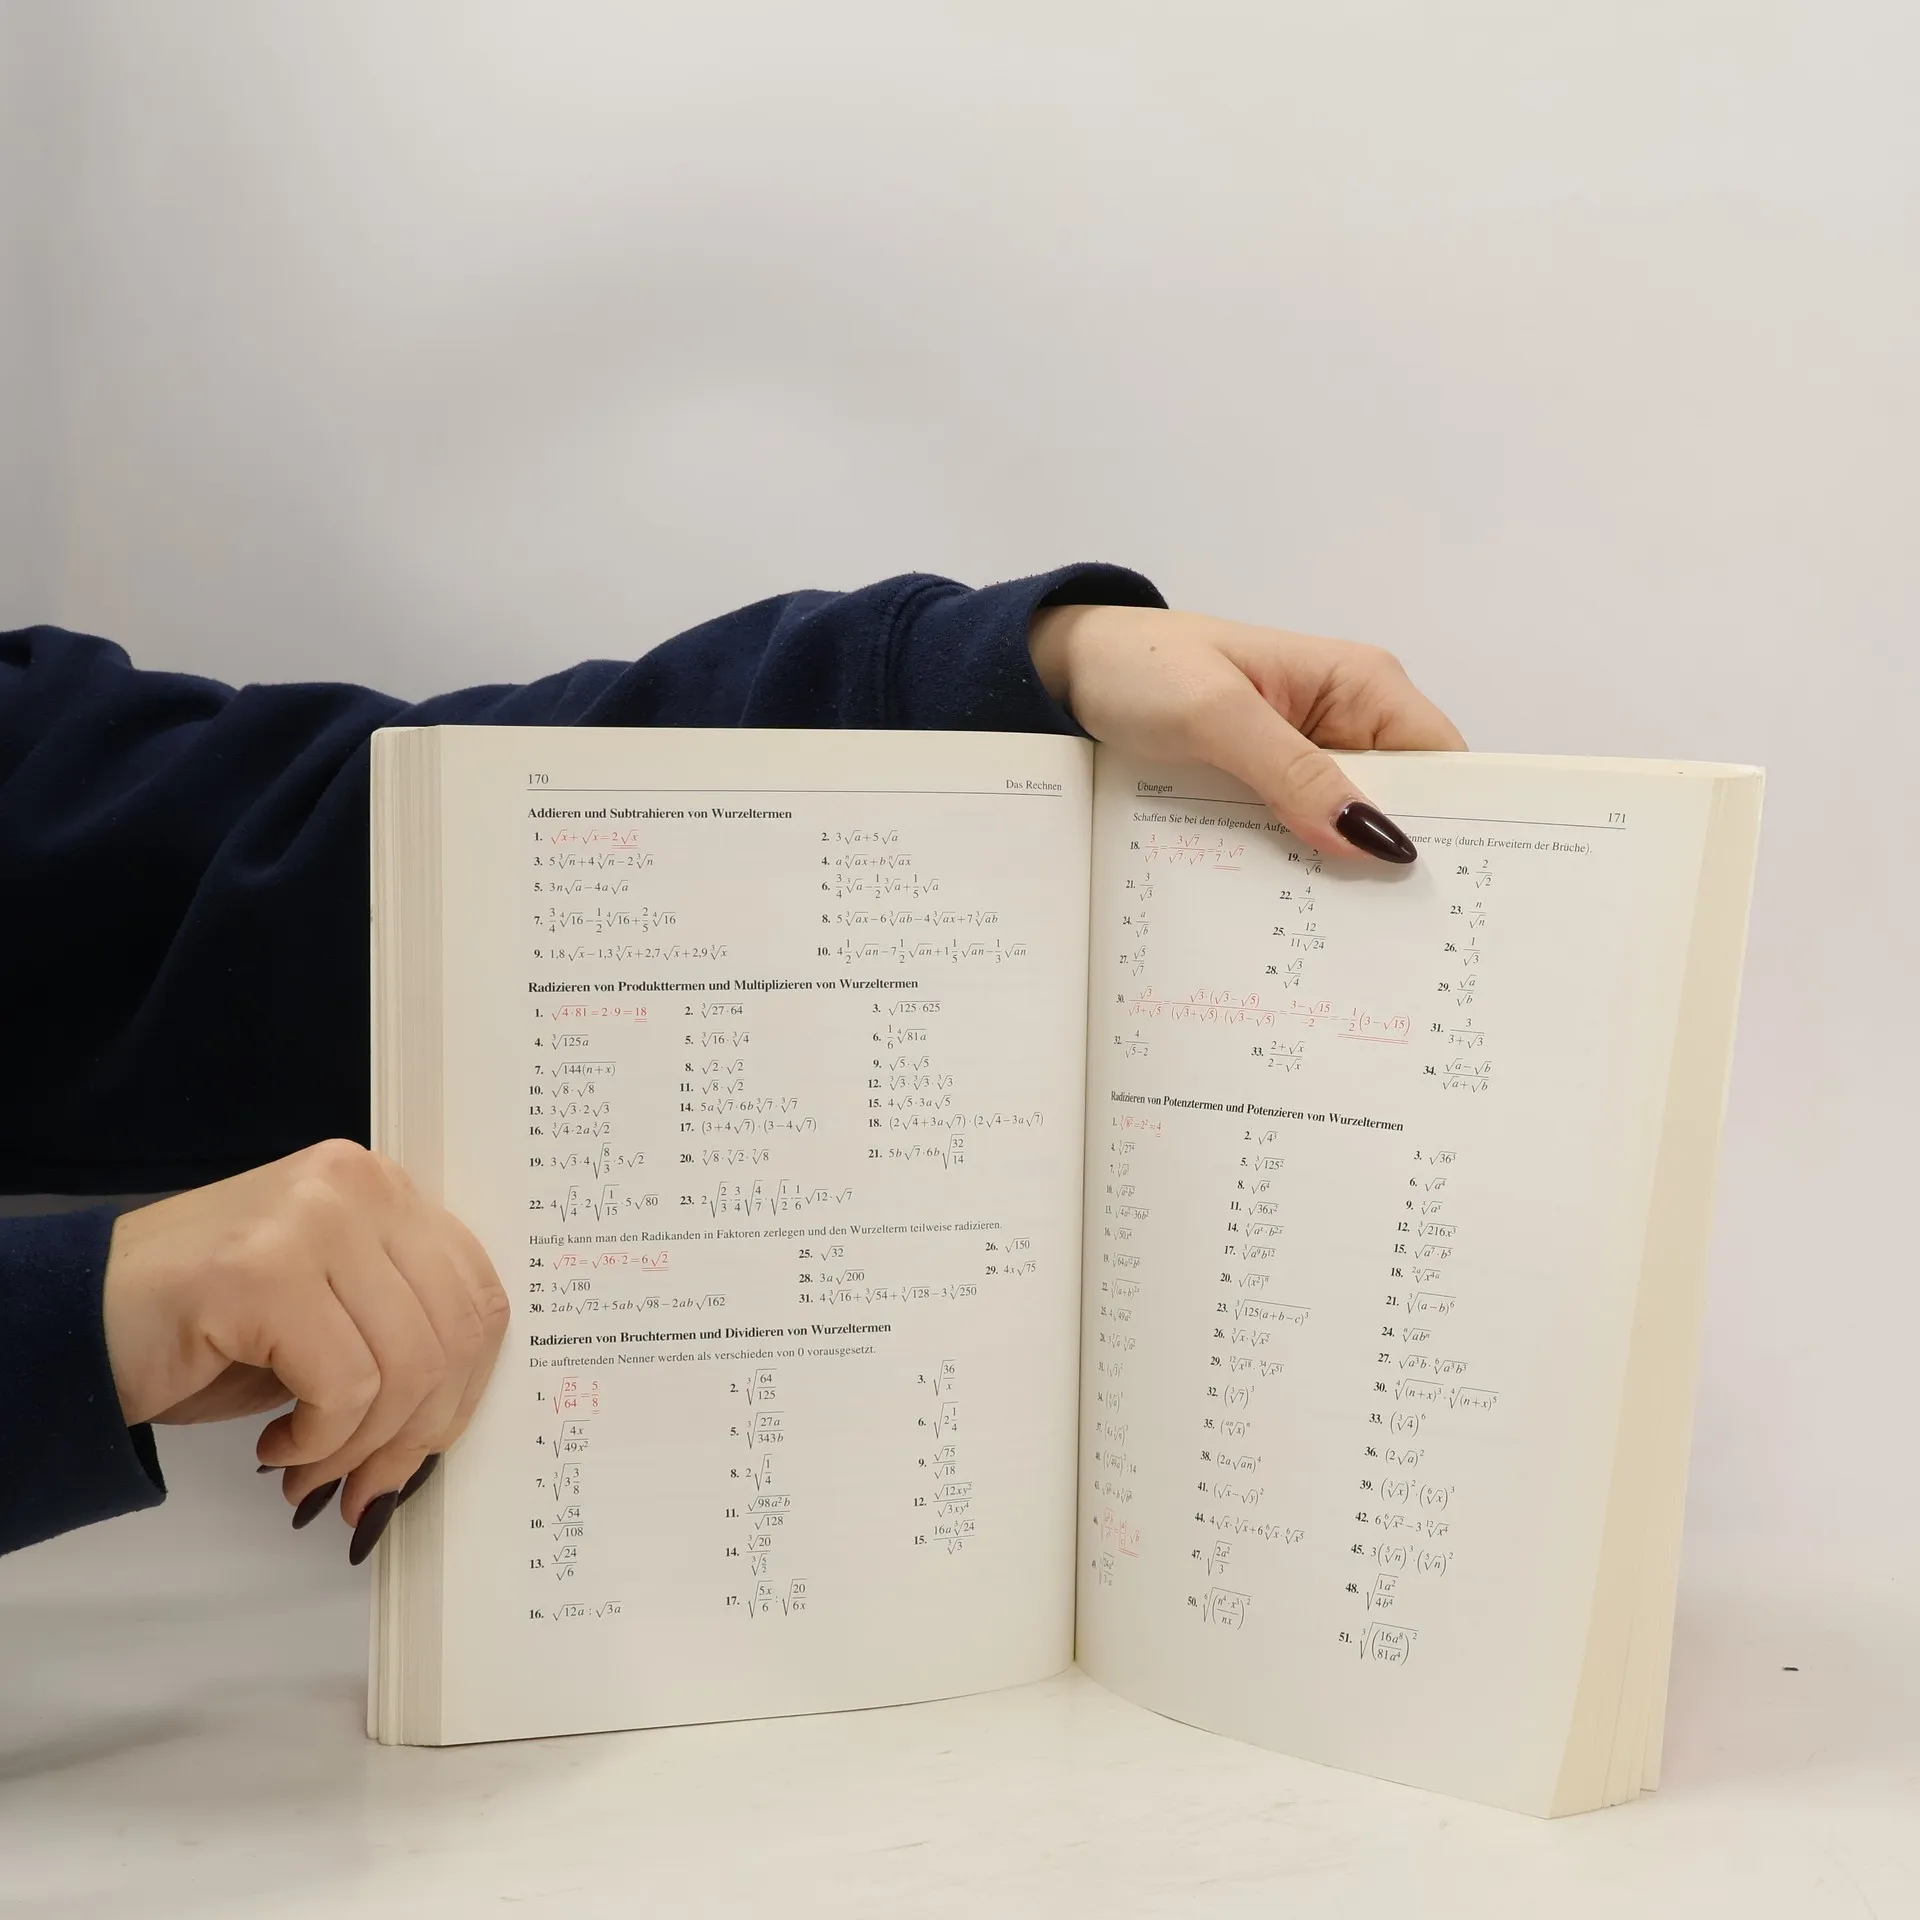 170 Das Rechnen
Addieren und Subtrahieren von Wurzeltermen
1. √x+√x=2√x 2. 3√a+5√a
3. 5∛n+4∛n−2∛n 4. aⁿ√ax+bⁿ√ax
5. 3n√a−4a√a 6. 3/4 ∛a−1/2 ∛a+1/5 √a
7. 3/4 ∜16−1/2 ∜16+2/5 ∜16 8. 5∛ax−6∛ab−4∛ax+7∛ab
9. 1,8√x−1,3∛x+2,7√x+2,9∛x 10. 4 1/2 √an−7 1/2 √an+1 1/5 √an−1/3 √an
Radizieren von Produkttermen und Multiplizieren von Wurzeltermen
1. √(4·81)=2·9=18 2. ∛(27·64) 3. √(125·625)
4. ∛(125a) 5. ∛16·∛4 6. 1/6 ∜(81a)
7. √(144(n+x)) 8. √2·√2 9. √5·√5
10. √8·√8 11. √8·√2 12. ∛3·∛3·∛3
13. 3√3·2√3 14. 5a∛7·6b∛7·∛7 15. 4√5·3a√5
16. ∛4·2a∛2 17. (3+4√7)·(3−4√7) 18. (2√4+3a√7)·(2√4−3a√7)
19. 3√3·4√(8/3)·5√2 20. ⁷√8·⁷√2·⁷√8 21. 5b√7·6b√(32/14)
22. 4√(3/4)·2√(1/15)·5√80 23. 2√(2/3)·3/4√(4/7)·√(1/2)·1/6√12·√7
Häufig kann man den Radikanden in Faktoren zerlegen und den Wurzelterm teilweise radizieren.
24. √72=√(36·2)=6√2 25. √32 26. √150
27. 3√180 28. 3a√200 29. 4x√75
30. 2ab√72+5ab√98−2ab√162 31. 4∛16+∛54+∛128−3∛250
Radizieren von Bruchtermen und Dividieren von Wurzeltermen
Die auftretenden Nenner werden als verschieden von 0 vorausgesetzt.
1. √(25/64)=5/8 2. ∛(64/125) 3. √(36/x)
4. √(4x/49x²) 5. ∛(27a/343b) 6. √(2 1/4)
7. ∛(3 3/8) 8. 2√(1/4) 9. √75/√18
10. √54/√108 11. √(98a²b)/√128 12. √(12xy²)/√(3xy⁴)
13. √24/√6 14. ∛20/∛(5/2) 15. 16a∛24/∛3
16. √12a : √3a 17. √(5x/6) : √(20/6x)
Übungen 171
Schaffen Sie bei den folgenden weg (durch Erweitern der Brüche).
18. 3/√7=3√7/(√7·√7)=3/7·√7 19. 5/√6 20. 2/√2
21. 3/√3 22. 4/√4 23. n/√n
24. a/√b 25. 12/(11√24) 26. 1/√3
27. √5/√7 28. √3/√4 29. √a/√b
30. √3/(√3+√5)=√3·(√3−√5)/((√3+√5)·(√3−√5))=(3−√15)/−2=−1/2(3−√15) 31. 3/(3+√3)
32. 4/(√5−2) 33. (2+√x)/(2−√x) 34. (√a−√b)/(√a+√b)
Radizieren von Potenztermen und Potenzieren von Wurzeltermen
1. ∛8²=2²=4 2. √4³ 3. √36³
5. ∛125² 6. √a⁴
8. √6⁴ 9.
11. √36x² 12. ∛216x³
14. 15. √(a⁷·b⁵)
17. ∛(a⁹b¹²) 18.
20. √(x²)ⁿ 21. ∛(a−b)⁶
23. ∛125(a+b−c)³ 24. ⁿ√abⁿ
26. ∛x·∛x² 27. √a³b·⁶√a³b³
29. 30. ∜(n+x)³·∜(n+x)⁵
32. (∛7)³ 33. (∛4)⁶
35. 36. (2√a)²
38. (2a√an)⁴ 39. (∛x)²·(⁶√x)³
41. (√x−√y)² 42. 6⁶√x²−3¹²√x⁴
44. 4√x·∛x+6⁶√x·⁶√x⁵ 45.
47. √(2a²/3) 48. √(1a²/4b⁴)
50. 51. ∛(16a⁸/81a⁴)²